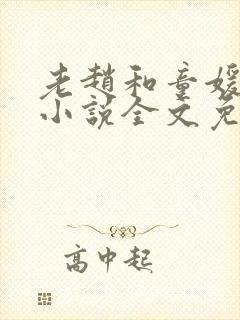 老趙和童媛
小說全文免
高中起